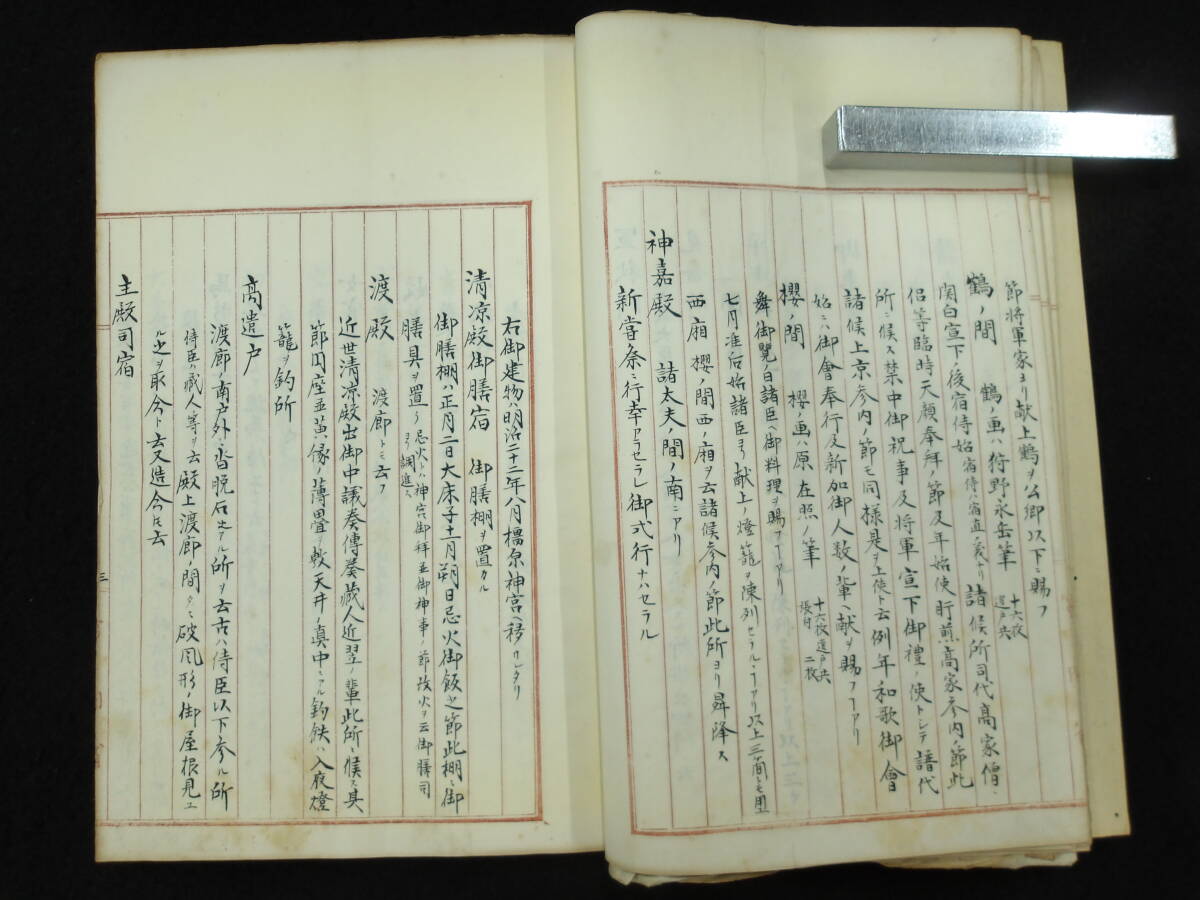 節将軍家ヨリ献上鶴ヲ公卿以下ニ賜フ
鶴ノ間 鶴ノ画ハ狩野永岳筆 十六枚遣戸共
関白宣下後宿侍始宿侍ハ宿直ノ義ナリ諸候所司代高家僧
侶等臨時天顔奉拜ノ節及年始使肝煎高家参内ノ節此
所ニ候ス禁中御祝事及将軍宣下御禮ノ使トシテ譜代
諸候上京参内ノ節モ同様是ヲ上使ト云例年和歌御會
始ニハ御會奉行及新加御人数ノ輩ヘ献ヲ賜フヿアリ
櫻ノ間 櫻ノ画ハ原在照ノ筆 十六枚遣戸共張付二枚
舞御覽ノ白諸臣ヘ御料理ヲ賜フヿアリ
七月准后始諸臣ヨリ献上ノ燈籠ヲ陳列セラルヽヿアリ以上三ノ間トモ用
西廂 櫻ノ間西ノ廂ヲ云諸候参内ノ節此所ヨリ昇降ス
神嘉殿 諸太夫ノ間ノ南ニアリ
新嘗祭ニ行幸アラセラレ御式行ナハセラル
右御建物明治二十二年八月橿原神宮ヘ移サレタリ
清凉殿御膳宿 御膳棚ヲ置カル
御膳棚ハ正月二日大床子十一月朔日忌火御飯之節此棚ニ御
膳具ヲ置ク忌火トハ神宮御拜並御神事ノ節改火ヲ云御膳司ヨリ調進ス
渡殿 渡廊トモ云フ
近世清凉殿出御中議奏傳奏藏人近習ノ輩此所ニ候ス其
節円座並黄縁ノ薄畳ヲ敷天井ノ真中ニアル釣鉄ハ入夜燈
籠ヲ釣所
髙遣戸
渡廊ノ南戸外ニ沓晩石アル所ヲ云古ハ侍臣以下参ル所
侍臣ハ藏人等ヲ云殿上渡廊ノ間タニ破風形ノ御屋根見ユ
ル之ヲ取合ト云又造合トモ云
主殿司宿
三